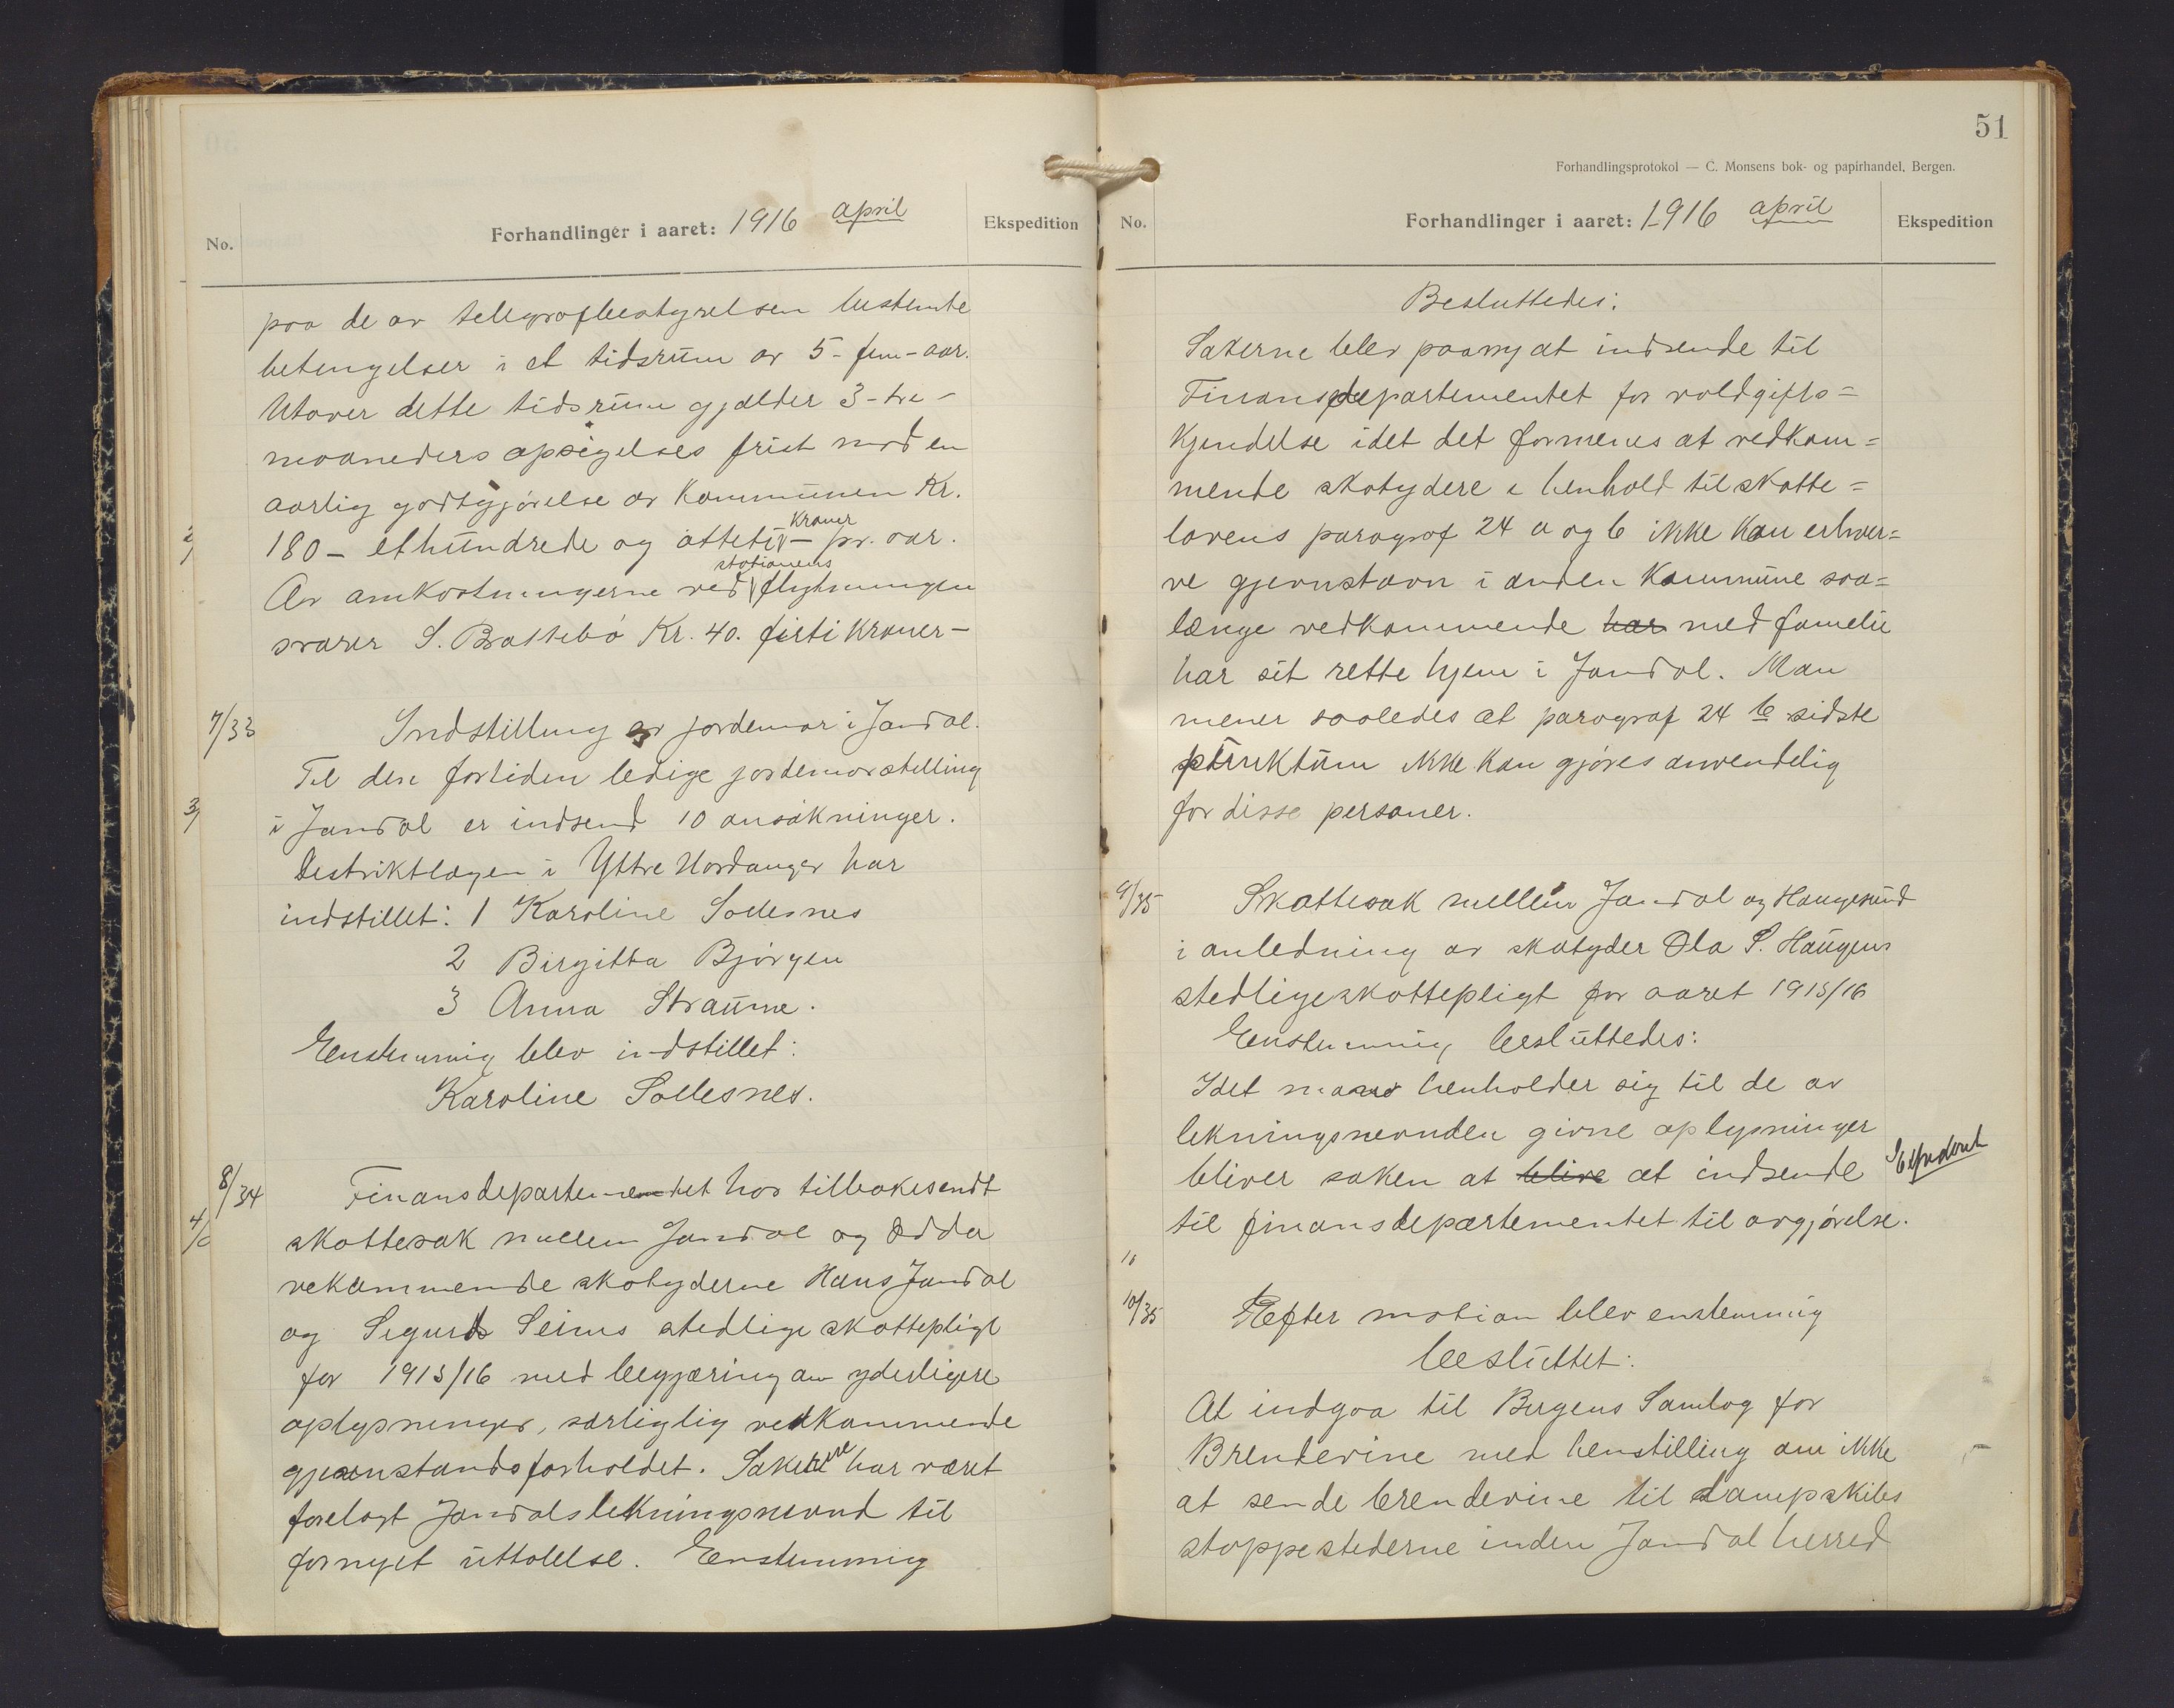 No.
Forhandlinger i aaret: 1916 april
Ekspedition
paa de av telegrafbestyrelsen bestemte
betengelser i et tidsrüm av 5- fem-aar.
Utover dette tidsrüm gjælder 3-tre-
maaneders opsigelses frist mod en
aarlig godtgjørelse av Kommünen Kr.
180- ethündrede og åtteti- kroner pr. aar.
Av omkostningerne ved stationens flyhningen
svarer S. Brattebö Kr. 40. firti Kroner-
7/33 Indstilling av jordemor i Jondal.
Til den fortiden ledige jordemorstelling
i Jondal er indsend 10 ansökninger.
Destriktlægen i Yttre Hordanger har
indstillet: 1 Karoline Sollesnes
2 Birgitta Bjørgen
3 Anna Straüme.
Enstemmig blev indstillet:
Karoline Sollesnes.
8/34 Finansdepartementet har tilbakesendt
skattesak mellem Jondal og Odda
vekommende skatyderne Hans Jondal
og Sigurd Seims stedlige skattepligt
for 1915/16 med begjæring om yderligere
oplysninger, særliglig vedkommende
gjenstandsforholdet. Sakerne har været
forelagt Jondals lekningsnevnd til
fornyet üttalelse. Enstemmig
51
Forhandlingsprotokol — C. Monsens bok- og papirhandel, Bergen.
No.
Forhandlinger i aaret: 1916 april
Ekspedition
Besluttedes:
Sakerne blev paany at indsende til
Finansdepartementet for voldgifts=
Kjendelse idet det formenes at vedkom=
mende skatydere i henhold til skatte=
lovens paragraf 24 a og b ikke kan erhver=
ve gjevnstavn i anden Kommüne saa=
længe vedkommende har med familie
har sit rette hjem i Jondal. Man
mener saaledes at paragraf 24 b sidste
pünktüm ikke kan gjøres anvendelig
for disse personer.
9/35 Skattesak mellem Jondal og Haugesünd
i anledning av skatyder Ola S. Haügens
stedlige skattepligt for aaret 1915/16
Enstemmig beslüttedes:
Idet man henholder sig til de av
lekningsnevnden givne oplysninger
bliver saken at blive at indsende
til finansdepartementet til avgjørelse.
Expedert
10
10/35 Efter motion blev enstemmig
beslüttet:
At indgaa til Bergens Samlag for
Brendevine med henstilling om ikke
at sende brendevine til dampskibs
stoppestederne inden Jondal herred